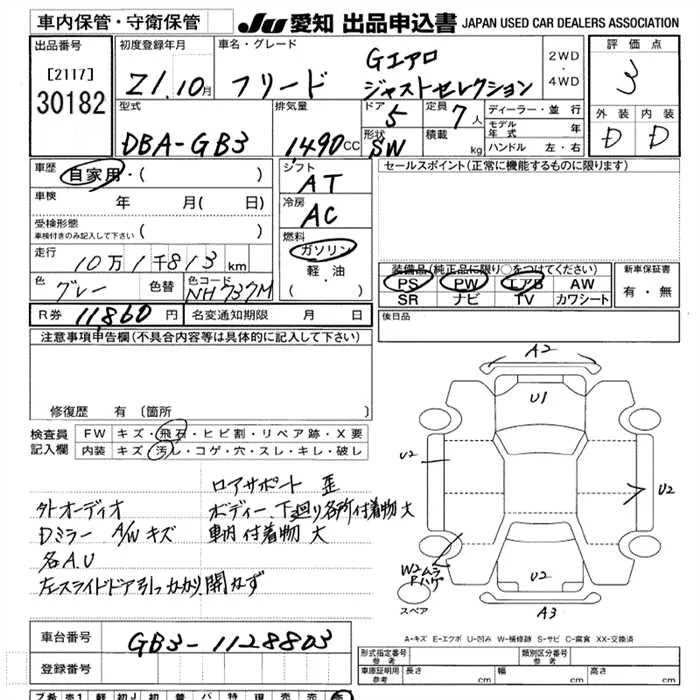 車内保管・守衛保管 JU 愛知 出品申込書 JAPAN USED CAR DEALERS ASSOCIATION
出品番号 [2117] 30182
初度登録年月 21.10月
車名・グレード フリード Gエアロ ジャストセレクション
2WD・4WD
評価点 3
外装 D 内装 D
型式 DBA-GB3
排気量 1490CC
ドア 5
形状 SW
定員 7人
積載 kg
ディーラー・並行
モデル年式 年
ハンドル 左・右
車歴 自家用・( )
車検 年 月( 日)
受検形態 車検付きのみ記入して下さい ( )
走行 10万1千813km
色 グレー 色替 色コード NH737M
シフト AT
冷房 AC
燃料 ガソリン 軽油 ( )
セールスポイント(正常に機能するものに限ります)
装備品(純正品に限り○をつけてください)
PS PW エアB AW
SR ナビ TV カワシート
新車保証書 有・無
後日品
R券 11,860円 名変通知期限 月 日
注意事項申告欄(不具合内容等は具体的に記入して下さい)
修復歴 有 〔箇所 〕
検査員記入欄
FW キズ・飛石・ヒビ割・リペア跡・X要
内装 キズ・汚し・コゲ・穴・スレ・キレ・破レ
ロアサポート 歪
外オーディオ ボディー、下廻り各所付着物大
Dミラー A/Wキズ 車内付着物 大
名A.U
左スライドドア引っかかり、開ねず
A2
U1
U2
U2
W2ムラ
U2
A3
スペア
A-キズ E-エクボ U-凹み W-補修跡 S-サビ C-腐食 XX-交換済
車台番号 GB3-1128803
登録番号
型式指定番号 参考 類別区分番号 参考
車庫証明用 参考 長さ cm 幅 cm 高さ cm